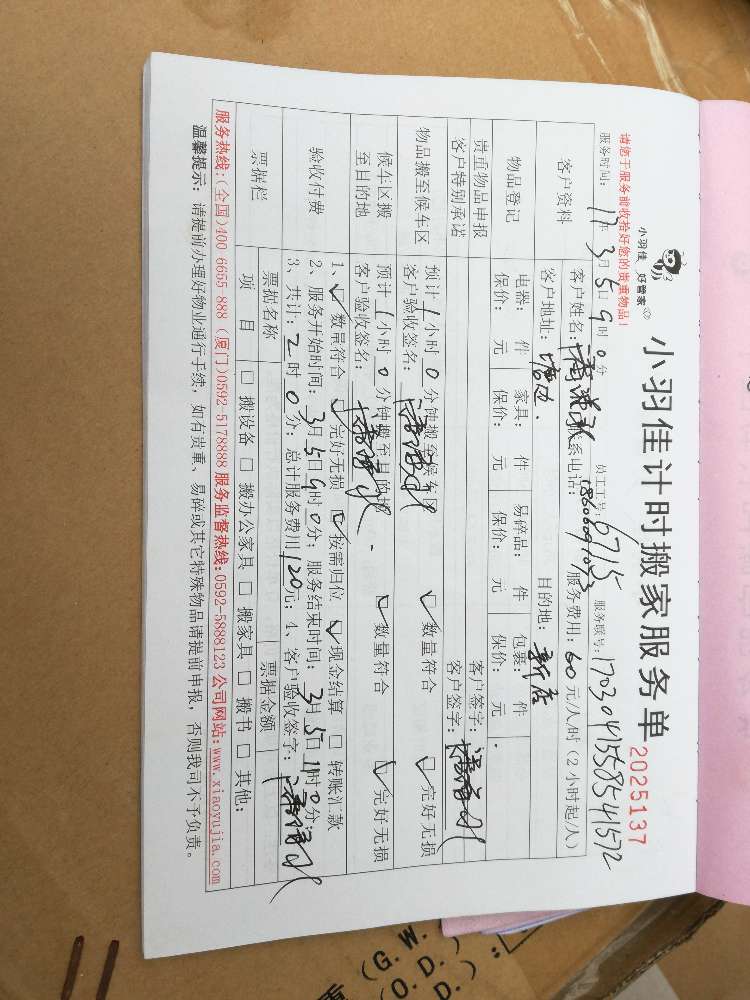 小羽佳 好管家
小羽佳计时搬家服务单
2025137
请您于服务前收拾好您的贵重物品！
服务时间：17年3月5日9时0分 员工工号：6715 服务账号：1703041558541572
客户资料
客户姓名： 联系电话： 服务费用：60元/人/时（2小时起/人）
客户地址：塘边． 目的地：新店
物品登记
电器： 件 家具： 件 易碎品： 件 包裹： 件
保价： 元 保价： 元 保价： 元 保价： 元
贵重物品申报 客户签字：
客户特别承诺 客户签字：
物品搬至候车区
预计1小时0分钟搬至候车区 ☑数量符合 ☑完好无损
客户验收签名：
候车区搬至目的地
预计1小时0分钟搬至目的地 ☑数量符合 ☑完好无损
客户验收签名：
验收付费
1、☑数量符合 ☑完好无损 ☑按需归位 ☑现金结算 □转账汇款
2、服务开始时间：3月5日9时0分；服务结束时间：3月5日11时0分；
3、共计：2时0分；总计服务费用120元；4、客户验收签字：
票据栏
票据名称 票据金额
项目 □搬设备 □搬办公家具 □搬家具 □搬书 □其他：
服务热线：（全国）400 6655 888（厦门）0592-5178888 服务监督热线：0592-5888123 公司网站：www.xiaoyujia.com
温馨提示：请提前办理好物业通行手续，如有贵重、易碎或其它特殊物品请提前申报，否则我司不予负责。
(G.W.
(O.D.)
D.)：